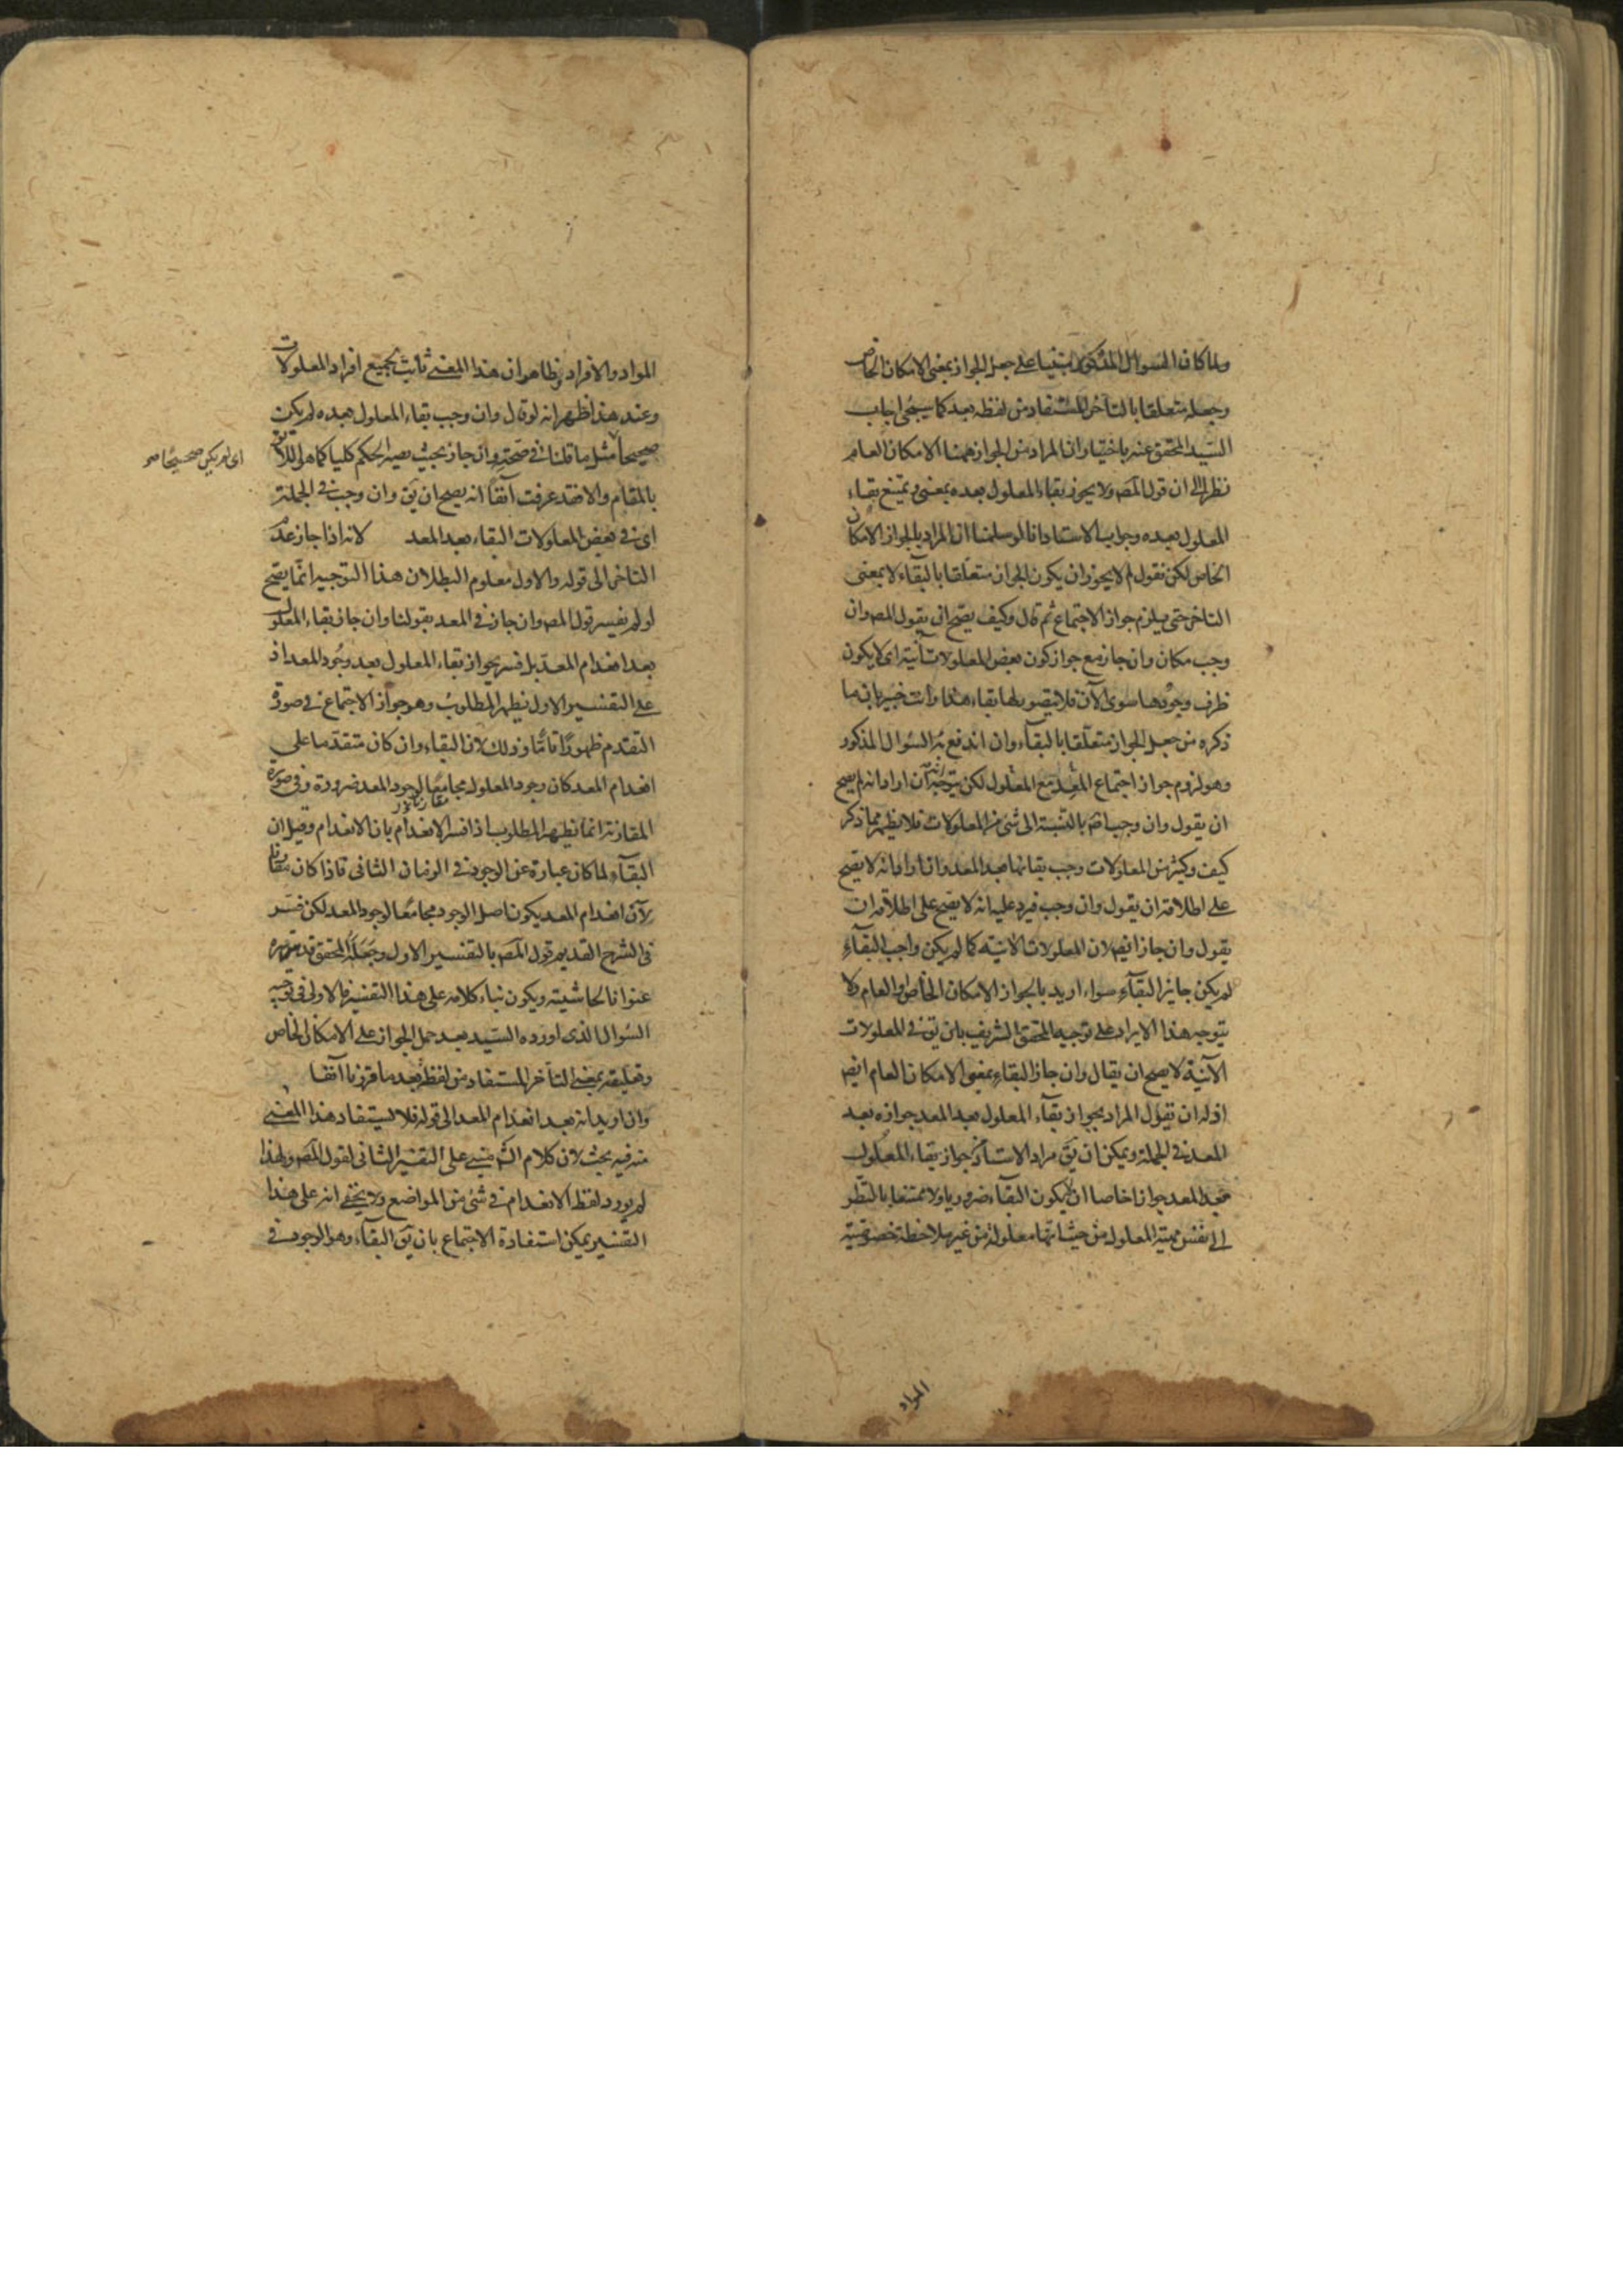 ولما كان السوال المذكور مبنيا على جعل الجواز بمعنى الامكان الخاص
وجعله متعلقا بالتاخر المستفاد من لفظه بعد كما سيجئ اجاب
السيد المحقق عنه باختيار ان المراد من الجواز ههنا الامكان العام
نظرا الى ان قول المصـ ولا يجوز بقاء المعلول بعده بمعنى ويمتنع بقاء
المعلول بعده وجواب الاستاد انا لو سلمنا ان المراد بالجواز الامكان
الخاص لكن نقول لم لا يجوز ان يكون الجواز متعلقا بالبقاء لا بمعنى
التاخر حتى يلزم جواز الاجتماع ثم قال وكيف يصح ان يقول المصـ وان
وجب مكان وان جاز مع جواز كون بعض المعلولات آنية اى لا يكون
ظرف وجودها سوى الآن فلا يتصور لها بقاء هذا وانت خبير بان ما
ذكره من جعل الجواز متعلقا بالبقآء وان اندفع به السوال المذكور
وهو لزوم جواز اجتماع المعد مع المعلول لكن يتوجه انه ان اراد انه لم يصح
ان يقول وان وجب اصـ بالنسبة الى شئ من المعلولات فلا يظهر مما ذكر
كيف وكثير من المعلولات وجب بقائها بعد المعد وان اراد انه لا يصح
على اطلاقه ان يقول وان وجب فيرد عليه انه لا يصح على اطلاقه ان
يقول وان جاز ايضـ لان المعلولات الآنية كما لم يكن واجب البقآء
لم يكن جايز البقآء سواء اريد بالجواز الامكان الخاص او العام ولا
يتوجه هذا الايراد على توجيه المحقق الشريف بان يق في المعلولات
الآنية لا يصح ان يقال وان جاز البقاء بمعنى الامكان العام ايضـ
اذ له ان يقول المراد بجواز بقآء المعلول بعد المعد جوازه بعد
المعد في الجملة ويمكن ان يق مراد الاستاذ بجواز بقاء المعلول
بعد المعد جوازا خاصا ان لا يكون البقآء ضروريا ولا ممتنعا بالنظر
الى نفس مهية المعلول من حيث انها معلولة من غير ملاحظة خصوصية
المواد
المواد والافراد وظاهر ان هذا المعنى ثابت لجميع افراد المعلولات
وعند هذا ظهر انه لو قال وان وجب بقاء المعلول بعده لم يكن
صحيحا مثل ما قلنا في صحة وان جاز بحيث يصير الحكم كليا كما هو اللائق
بالمقام والا فقد عرفت آنفا انه يصح ان يق وان وجب في الجملة
اى في بعض المعلولات البقاء بعد المعد لانه اذا جاز عند
التاخر الى قوله والاول معلوم البطلان هذا التوجيه انما يصح
لو لم يفسر قول المصـ وان جاز في المعد بقولنا وان جاز بقاء المعلول
بعد انعدام المعد بل فسر بجواز بقاء المعلول بعد وجود المعد اذ
على التفسير الاول يظهر المطلوب وهو جواز الاجتماع في صورة
التقدم ظهورا تاما وذلك لان البقاء وان كان متقدما على
انعدام المعد كان وجود المعلول مجامعا لوجود المعد ضرورة وفي صورة
المقارنة انما يظهر المطلوب اذا فسر الانعدام بان الانعدام وقيل ان
البقآء لما كان عبارة عن الوجود في الزمان الثاني فاذا كان مقارنا
لآن انعدام المعد يكون اصل الوجود مجامعا لوجود المعد لكن فسر
في الشرح القديم قول المصـ بالتفسير الاول وجعله المحقق قدس سره
عنوانا لحاشيته ويكون بناء كلامه على هذا التفسير فالاولى في توجيه
السوال الذى اورده السيد بعد حمل الجواز على الامكان الخاص
وتعليقه بمعنى التأخر المستفاد من لفظ بعد ما قررنا آنفا
وان اريد انه بعد انعدام المعد الى قوله فلا يستفاد هذا المعنى
منه فيه بحث لان كلام الشـ مبني على التفسير الثاني لقول المصـ ولهذا
لم يورد لفظ الانعدام في شئ من المواضع ولا يخفى انه على هذا
التفسير يمكن استفادة الاجتماع بان يق البقآء وهو الوجود في
اى لم يكن صحيحا